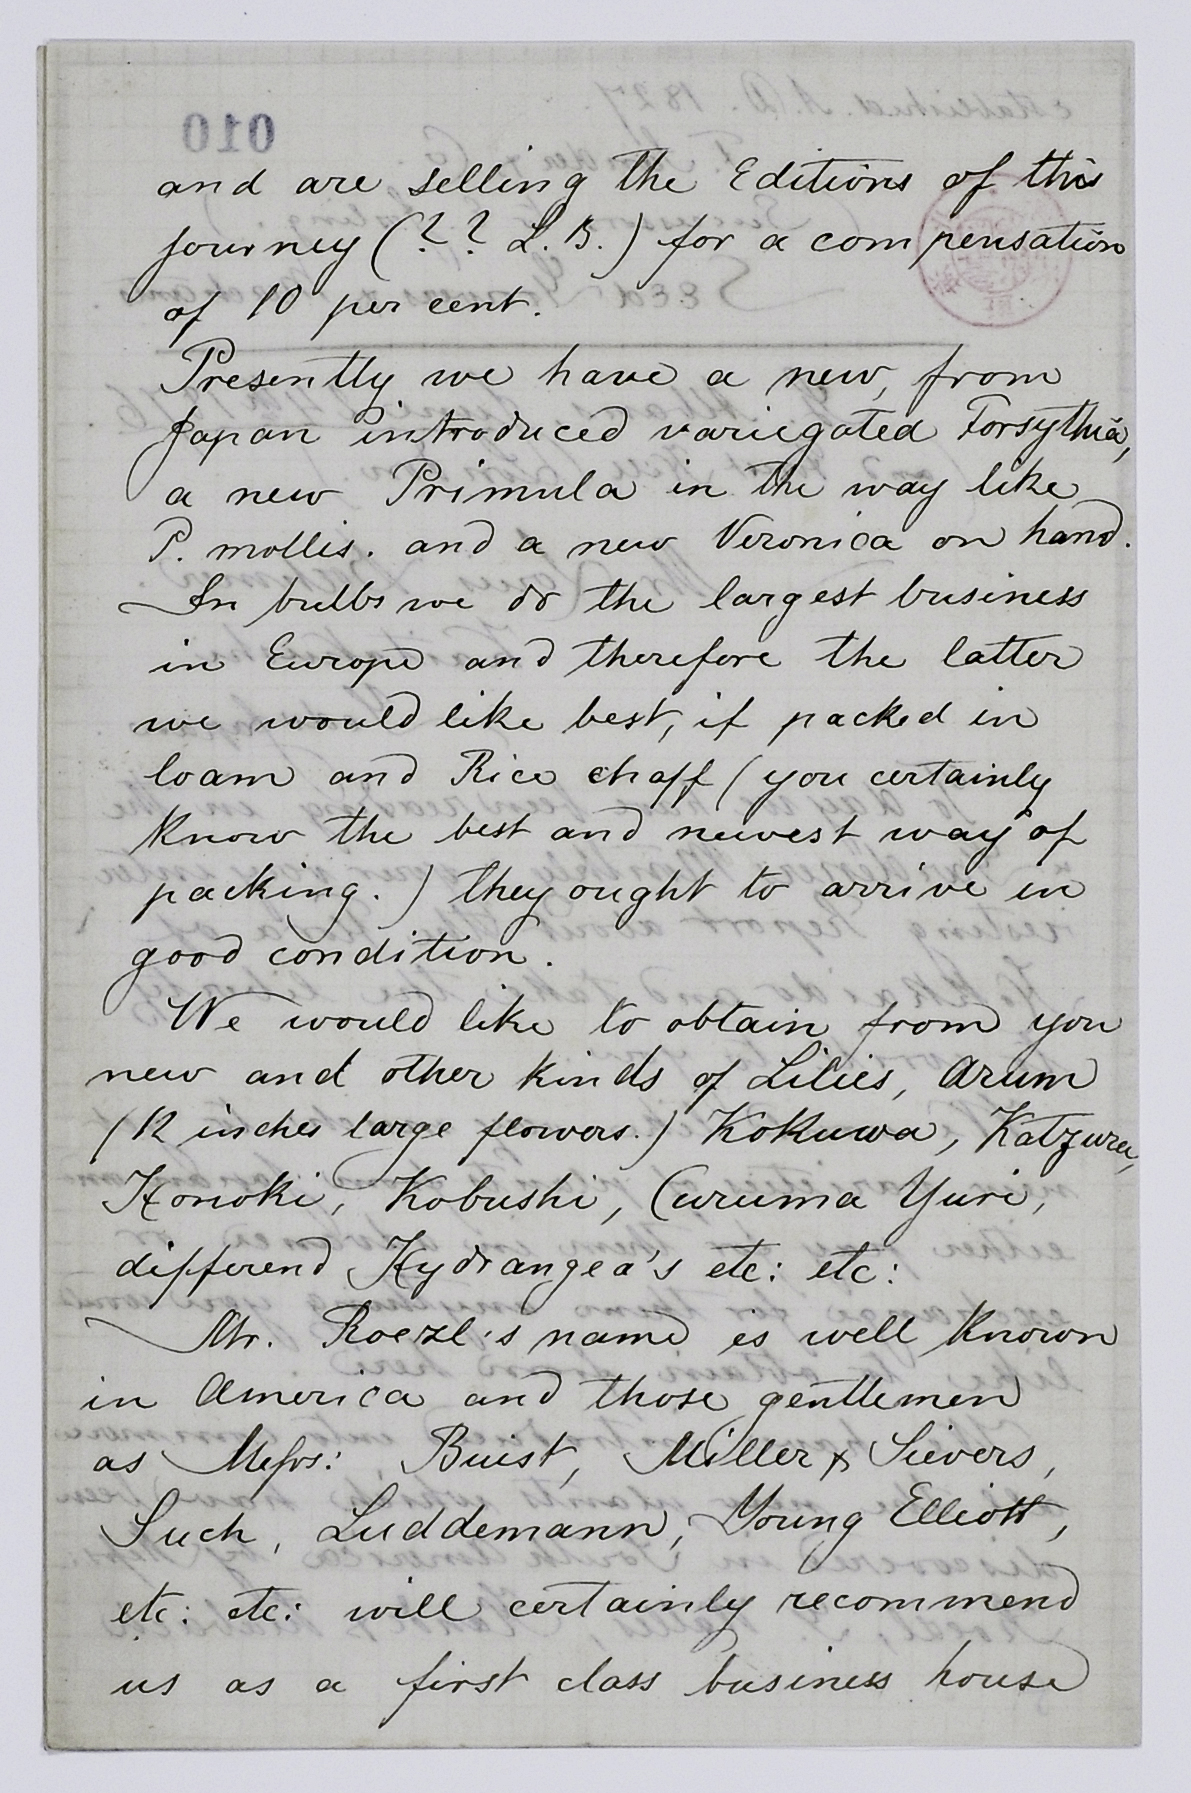 010
and are selling the Editions of this
journey (?? L. B.) for a compensation
of 10 per cent.
Presently we have a new, from
Japan introduced variegated Forsythia,
a new Primula in the way like
P. mollis. and a new Veronica on hand.
In bulbs we do the largest business
in Europe and therefore the latter
we would like best, if packed in
loam and Rice chaff (you certainly
know the best and newest way of
packing.) they ought to arrive in
good condition.
We would like to obtain from you
new and other kinds of Lilies, Arum
(12 inches large flowers.) Kokuwa, Katzura,
Honoki, Kobushi, Curuma Yuri,
differend Hydrangea's etc: etc:
Mr. Roezl's name is well known
in America and those gentlemen
as Messrs: Buist, Miller & Sievers,
Such, Luddemann, Young Elliott,
etc: etc: will certainly recommend
us as a first class business house